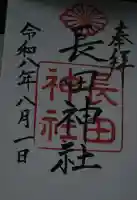 奉拝
長田神社
長田
神社
令和八年八月一日